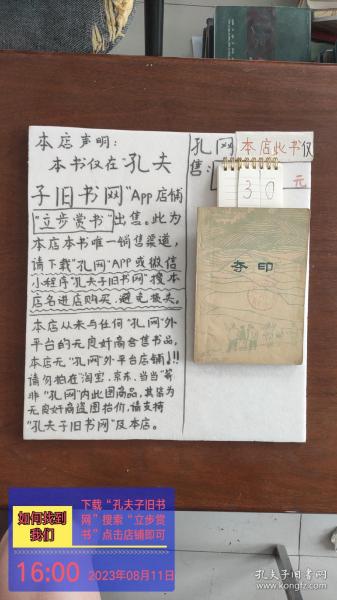 本店声明：
本书仅在"孔夫
子旧书网"App店铺
"立步赏书"出售。此为
本店本书唯一销售渠道，
请下载"孔网"APP或微信
小程序"孔夫子旧书网"搜本
店名进店购买，避免损失。
本店从未与任何"孔网"外
平台的无良奸商合售书品，
本店无"孔网"外平台店铺!!!
请勿拍在淘宝、京东、当当等
非"孔网"内此图商品，其皆为
无良奸商盗图抬价，请支持
"孔夫子旧书网"及本店。
孔网本店此书仅
售：30元
夺印
如何找到
我们
下载"孔夫子旧书
网"搜索"立步赏
书"点击店铺即可
16:00 2023年08月11日
孔夫子旧书网